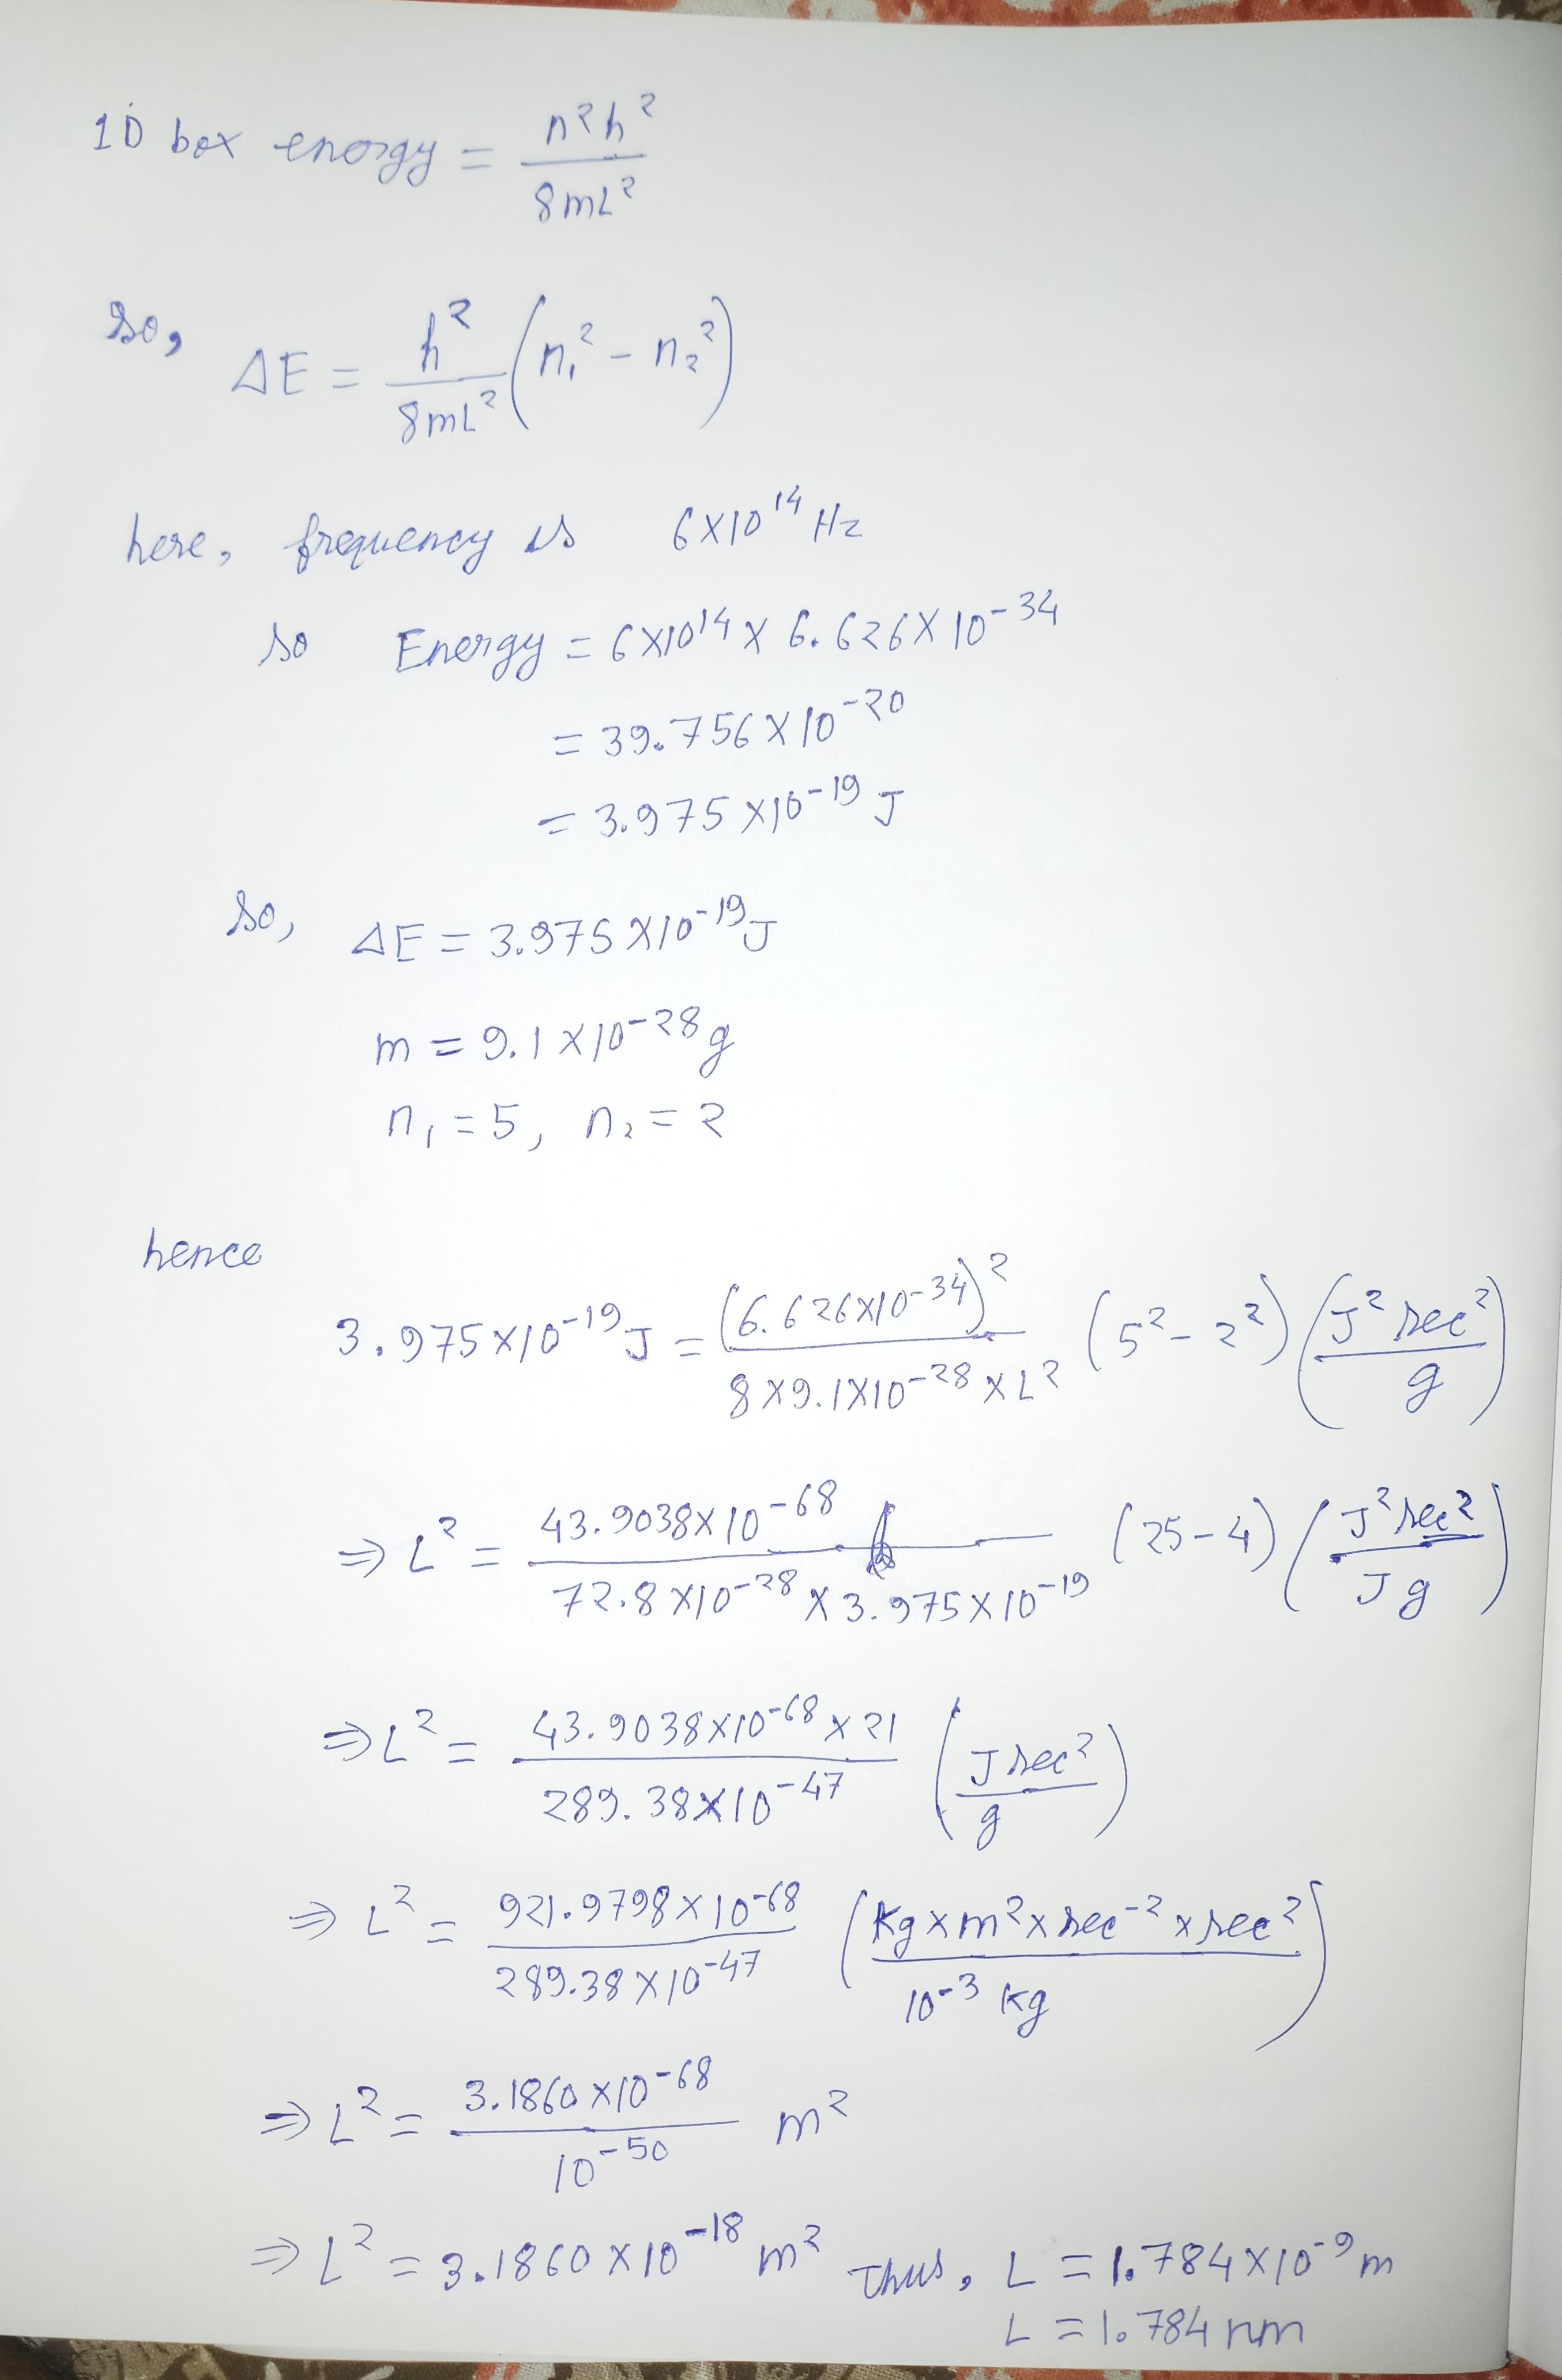 1D box energy = n²h² / 8mL²
So, ΔE = h² / 8mL² (n₁² - n₂²)
here, frequency is 6×10¹⁴ Hz
so Energy = 6×10¹⁴ × 6.626×10⁻³⁴
= 39.756×10⁻²⁰
= 3.975×10⁻¹⁹ J
So, ΔE = 3.975×10⁻¹⁹ J
m = 9.1×10⁻²⁸ g
n₁ = 5, n₂ = 2
hence
3.975×10⁻¹⁹ J = (6.626×10⁻³⁴)² / 8×9.1×10⁻²⁸×L² (5² - 2²) (J² sec² / g)
⇒ L² = 43.9038×10⁻⁶⁸ / 72.8×10⁻²⁸ × 3.975×10⁻¹⁹ (25-4) (J² sec² / J g)
⇒ L² = 43.9038×10⁻⁶⁸ × 21 / 289.38×10⁻⁴⁷ (J sec² / g)
⇒ L² = 921.9798×10⁻⁶⁸ / 289.38×10⁻⁴⁷ (Kg×m²×sec⁻²×sec² / 10⁻³ Kg)
⇒ L² = 3.1860×10⁻⁶⁸ / 10⁻⁵⁰ m²
⇒ L² = 3.1860×10⁻¹⁸ m² Thus, L = 1.784×10⁻⁹ m
L = 1.784 nm